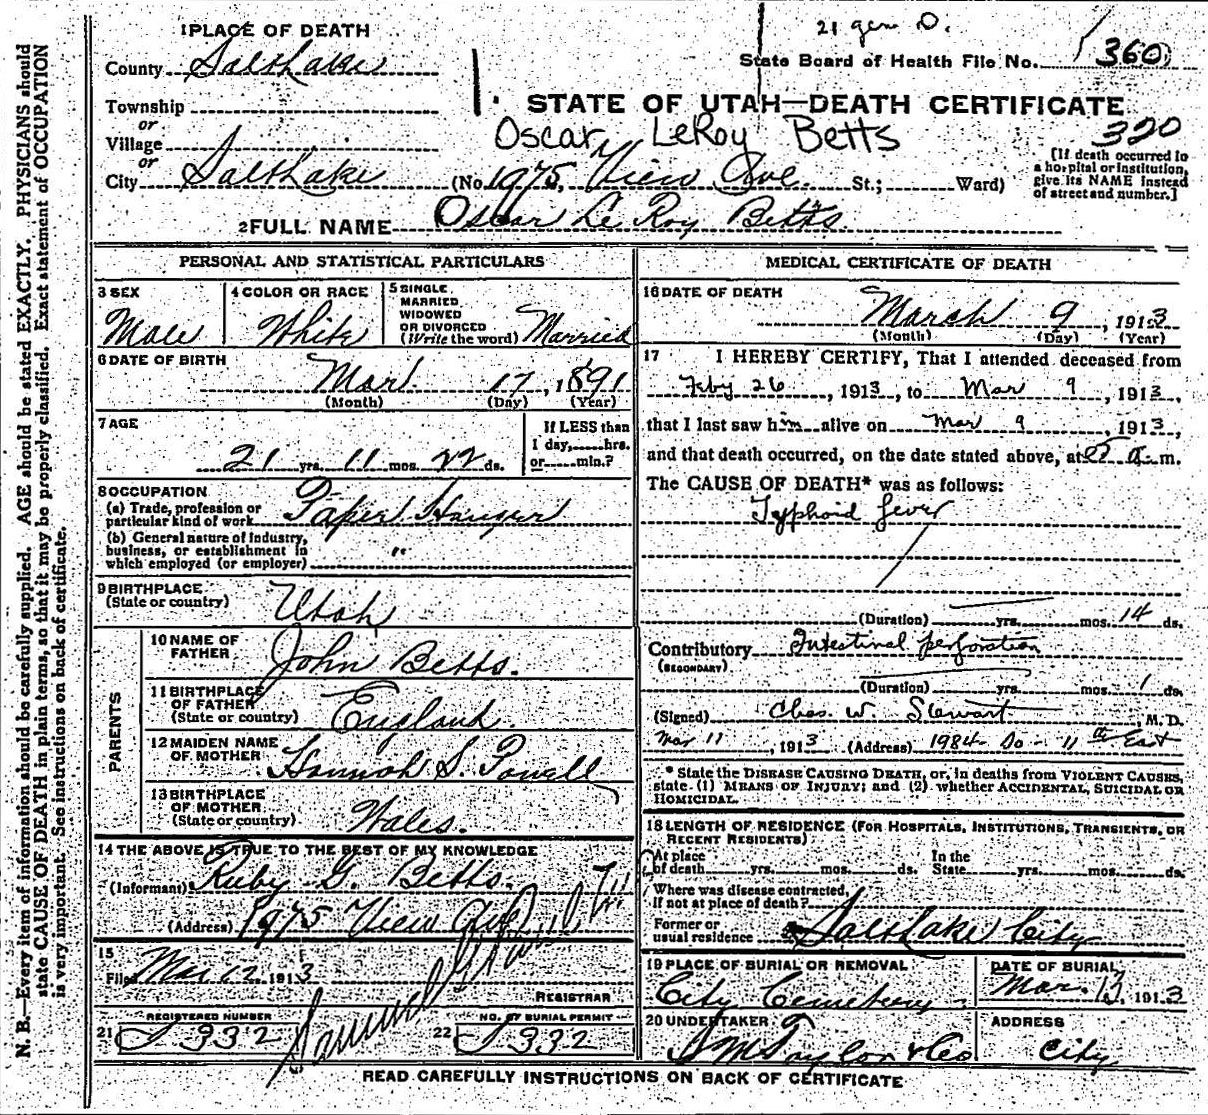 21 gen D.
State Board of Health File No. 360
1 PLACE OF DEATH
County Salt Lake
STATE OF UTAH—DEATH CERTIFICATE
Township
or
Village
or
Oscar LeRoy Betts
320
City Salt Lake (No. 1975, View Ave. St.; Ward)
[If death occurred in a hospital or institution, give its NAME instead of street and number.]
2 FULL NAME Oscar Le Roy Betts.
PERSONAL AND STATISTICAL PARTICULARS
3 SEX
Male
4 COLOR OR RACE
White
5 SINGLE, MARRIED, WIDOWED OR DIVORCED (Write the word) Married
6 DATE OF BIRTH
Mar. 17, 1891
(Month) (Day) (Year)
7 AGE
If LESS than
1 day, hrs.
or min.?
21 yrs. 11 mos. 22 ds.
8 OCCUPATION
(a) Trade, profession or
particular kind of work Paper Hanger
(b) General nature of industry,
business, or establishment in "
which employed (or employer)
9 BIRTHPLACE
(State or country) Utah
PARENTS
10 NAME OF
FATHER John Betts.
11 BIRTHPLACE
OF FATHER
(State or country) England.
12 MAIDEN NAME
OF MOTHER Hannah S. Powell
13 BIRTHPLACE
OF MOTHER
(State or country) Wales.
14 THE ABOVE IS TRUE TO THE BEST OF MY KNOWLEDGE
(Informant) Ruby G. Betts.
(Address) 1975 View Ave
15
Filed Mar 12 1913
REGISTRAR
REGISTERED NUMBER
21 332
NO. OF BURIAL PERMIT
22 332
MEDICAL CERTIFICATE OF DEATH
16 DATE OF DEATH
March 9, 1913
(Month) (Day) (Year)
17 I HEREBY CERTIFY, That I attended deceased from
Feby 26, 1913, to Mar 9, 1913,
that I last saw him alive on Mar 9, 1913,
and that death occurred, on the date stated above, at a. m.
The CAUSE OF DEATH* was as follows:
Typhoid fever
(Duration) yrs. mos. 14 ds.
Contributory Intestinal perforation
(SECONDARY)
(Duration) yrs. mos. 1 ds.
(Signed) Chas. W. Stewart, M. D.
Mar 11, 1913 (Address) 1984 So - 11th East
* State the DISEASE CAUSING DEATH, or, in deaths from VIOLENT CAUSES,
state (1) MEANS OF INJURY; and (2) whether ACCIDENTAL, SUICIDAL OR
HOMICIDAL.
18 LENGTH OF RESIDENCE (FOR HOSPITALS, INSTITUTIONS, TRANSIENTS, OR
RECENT RESIDENTS)
At place In the
of death yrs. mos. ds. State yrs. mos. ds.
Where was disease contracted,
if not at place of death?
Former or
usual residence Salt Lake City
19 PLACE OF BURIAL OR REMOVAL
City Cemetery
DATE OF BURIAL
Mar. 13, 1913
20 UNDERTAKER
S M Taylor & Co
ADDRESS
City
READ CAREFULLY INSTRUCTIONS ON BACK OF CERTIFICATE
N. B.—Every item of information should be carefully supplied. AGE should be stated EXACTLY. PHYSICIANS should
state CAUSE OF DEATH in plain terms, so that it may be properly classified. Exact statement of OCCUPATION
is very important. See instructions on back of certificate.